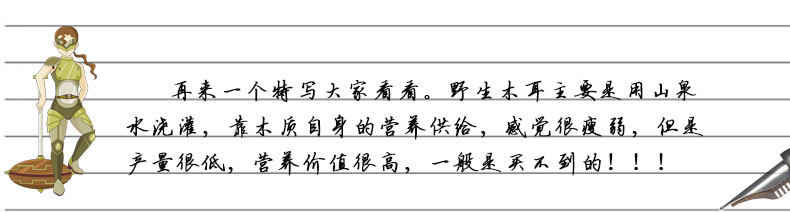 再来一个特写大家看看。野生木耳主要是用山泉
水浇灌，靠木质自身的营养供给，感觉很瘦弱，但是
产量很低，营养价值很高，一般是买不到的！！！